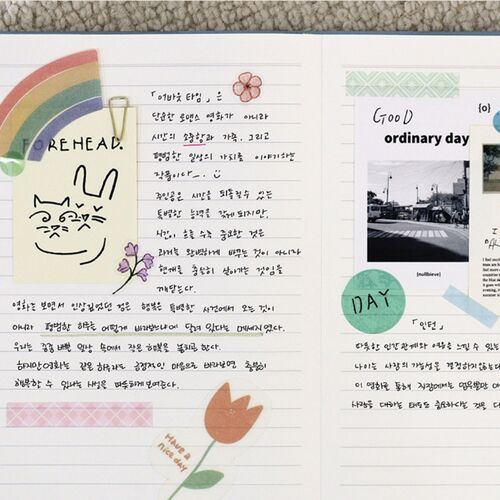 「어바웃 타임」은
단순한 로맨스 영화가 아니라
시간의 소중함과 가족, 그리고
평범한 일상의 가치를 이야기하는
작품이다...
FOREHEAD.
주인공은 시간을 되돌릴 수 있는
특별한 능력을 갖게 되지만,
시간이 흐를수록 중요한 것은
과거를 완벽하게 바꾸는 것이 아니라
현재를 충실히 살아가는 것임을
깨닫는다.
영화를 보면서 인상깊었던 점은 행복은 특별한 사건에서 오는 것이
아니라 평범한 하루를 어떻게 바라보느냐에 달려 있다는 메세지였다.
우리는 종종 바쁜 일상 속에서 작은 행복을 놓치곤 한다.
하지만 영화는 같은 하루라도 긍정적인 마음으로 바라보면 충분히
행복할 수 있다는 사실을 따뜻하게 보여준다.
Have a
nice day
GOOD
{o}
ordinary day
(nullbieve)
DAY
I
「인턴」
다양한 인간관계와 여운을 느낄 수 있는
나이는 사람의 가능성을 결정하지 않는다
이 영화를 통해 직장에서는 업무뿐만
사람을 대하는 태도도 중요하다는 것을